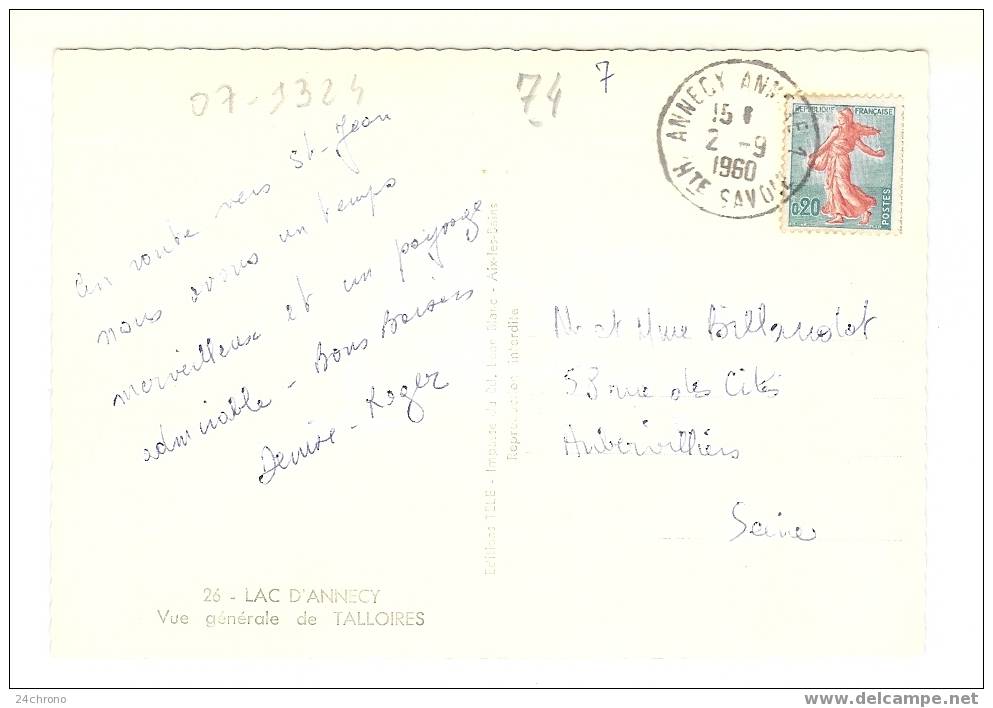 07-1324
74
7
ANNECY ANNEXE 1
15
2 -9
1960
HTE SAVOIE
REPUBLIQUE FRANÇAISE
0,20
POSTES
En route vers St-Jean
nous avons un temps
merveilleux et un paysage
admirable - Bons Baisers
Denise - Roger
Editions TELE - Impasse du Dr Léon Blanc - Aix-les-Bains
Reproduction interdite
M et Mme
53 rue des Cités
Aubervilliers
Seine
26 - LAC D'ANNECY
Vue générale de TALLOIRES
24chrono
www.delcampe.net